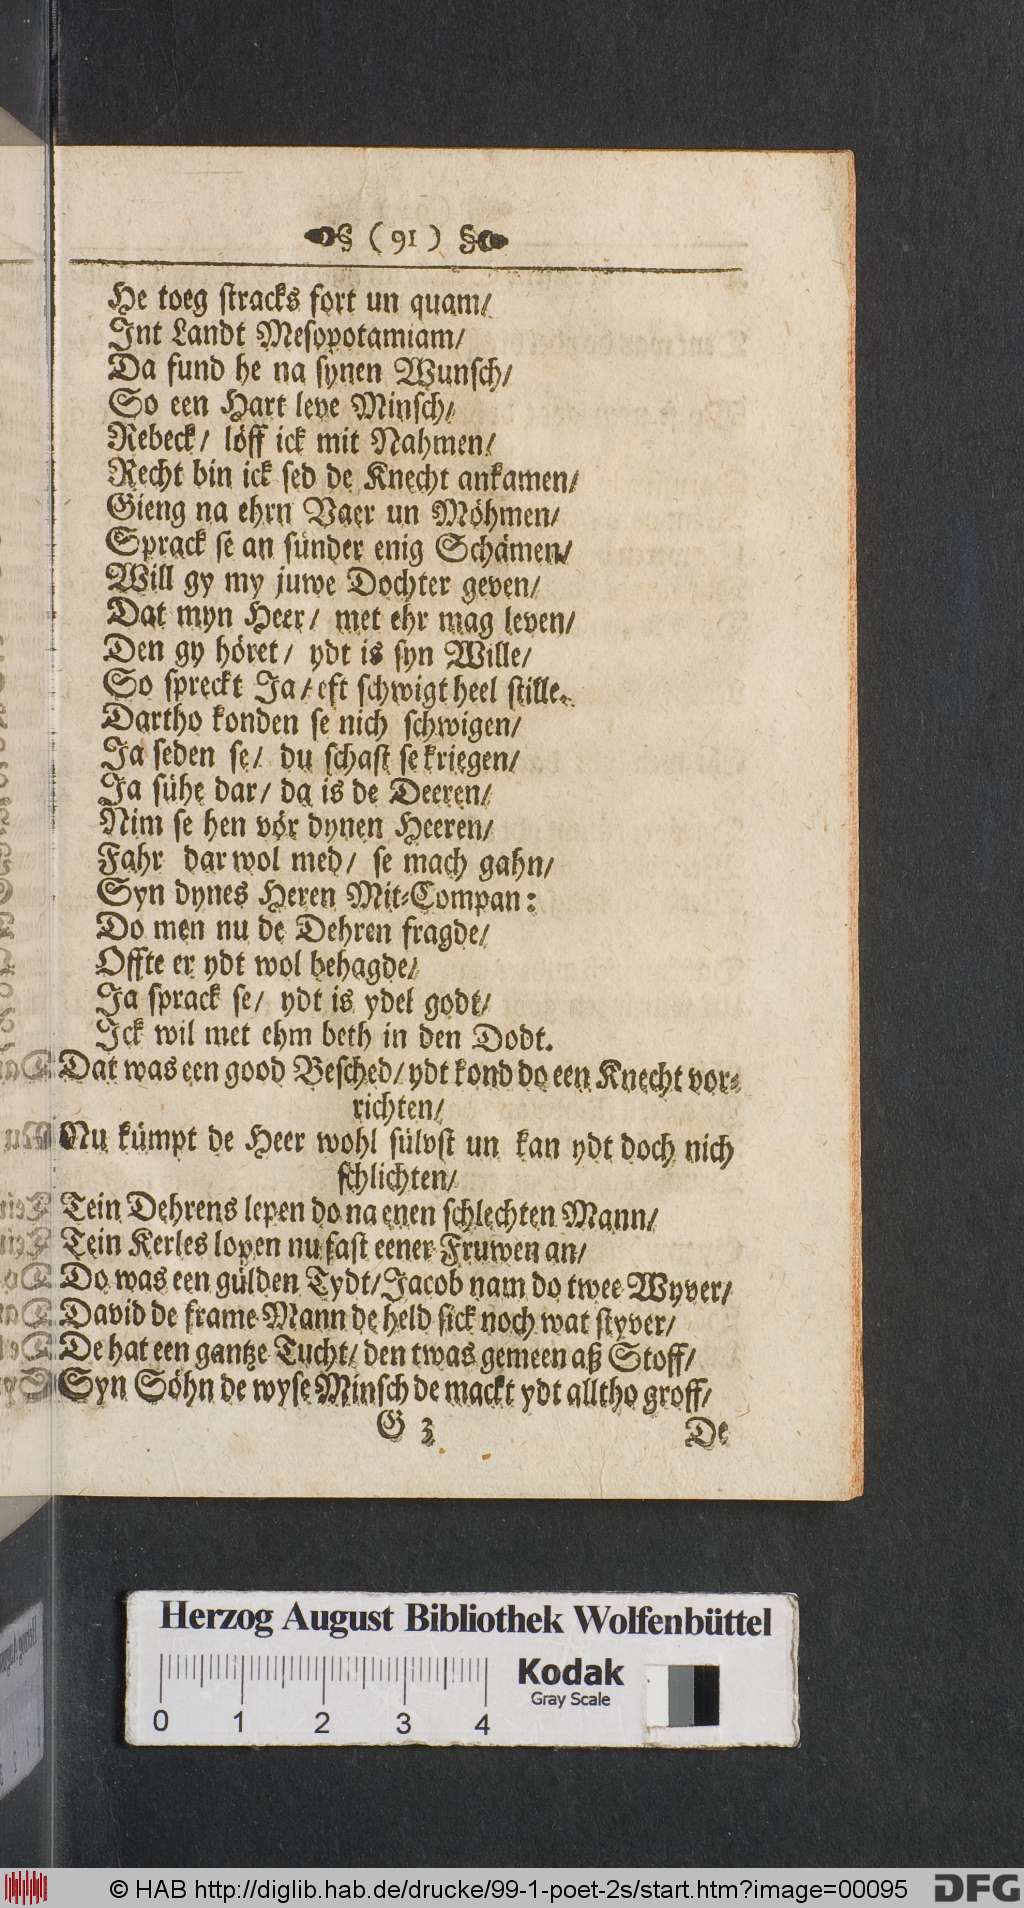 ( 91 )
He toeg stracks fort un quam/
Int Landt Mesopotamiam/
Da fund he na synen Wunsch/
So een Hart leve Minsch/
Rebeck/ löff ick mit Nahmen/
Recht bin ick sed de Knecht ankamen/
Gieng na ehrn Vaer un Möhmen/
Sprack se an sünder enig Schämen/
Will gy my juwe Dochter geven/
Dat myn Heer/ met ehr mag leven/
Den gy höret/ ydt is syn Wille/
So spreckt Ja/ eft schwigt heel stille.
Dartho konden se nich schwigen/
Ja seden se/ du schast se kriegen/
Ja sühe dar/ da is de Deeren/
Nim se hen vör dynen Heeren/
Fahr dar wol med/ se mach gahn/
Syn dynes Heren Mit-Compan:
Do men nu de Dehren fragde/
Offte er ydt wol behagde/
Ja sprack se/ ydt is ydel godt/
Ick wil met ehm beth in den Dodt.
Dat was een good Besched/ ydt kond do een Knecht vor-
richten/
Nu kümpt de Heer wohl sülvst un kan ydt doch nich
schlichten/
Tein Dehrens lepen do na enen schlechten Mann/
Tein Kerles lopen nu fast eener Fruwen an/
Do was een gülden Tydt/ Jacob nam do twee Wyver/
David de frame Mann de held sick noch wat styver/
De hat een gantze Tucht/ den twas gemeen aß Stoff/
Syn Söhn de wyse Minsch de mackt ydt alltho groff/
G 3
De
Herzog August Bibliothek Wolfenbüttel
Kodak
Gray Scale
0 1 2 3 4
© HAB http://diglib.hab.de/drucke/99-1-poet-2s/start.htm?image=00095
DFG